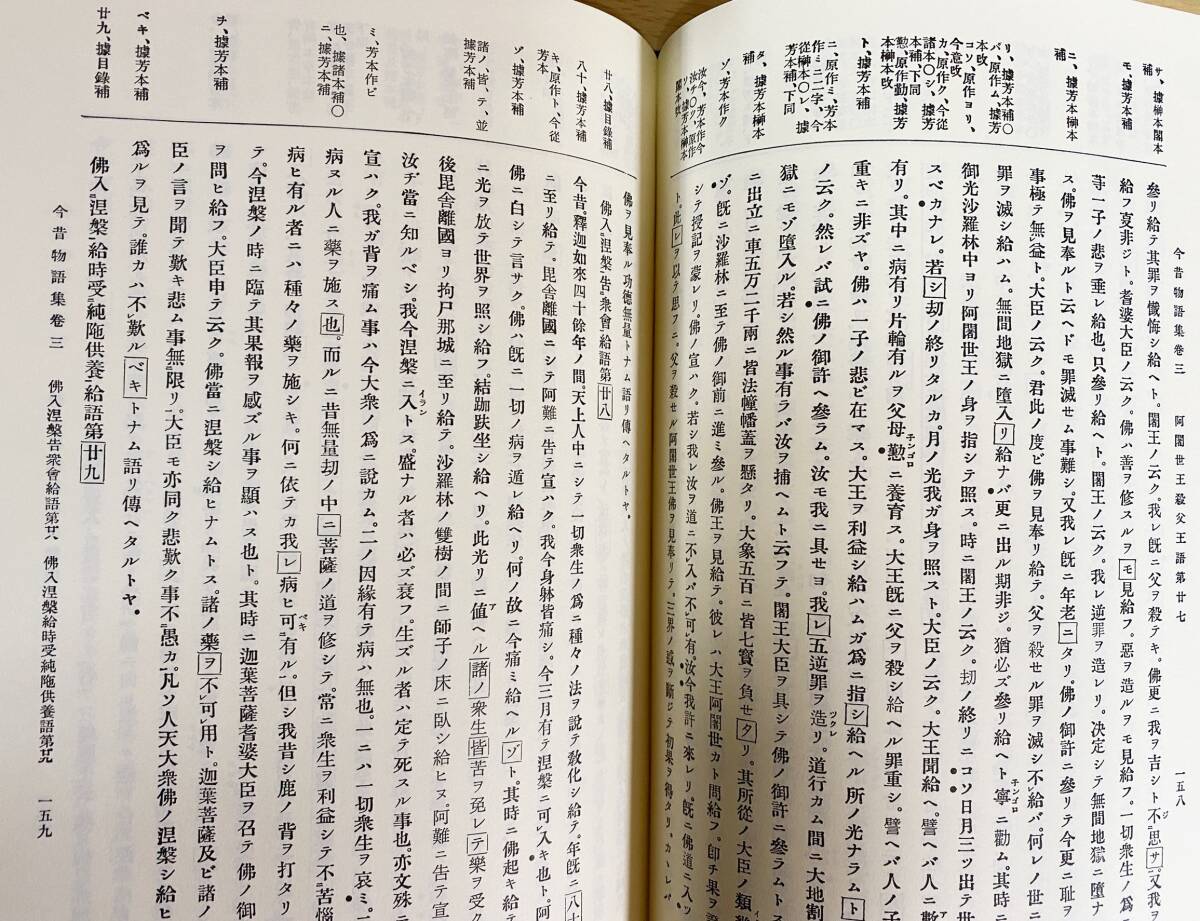 今昔物語集卷三　　阿闍世王殺父王語第廿七　　一五八
サ、據榊本閣本補
モ、據芳本補
ニ、據芳本榊本補
リ、據芳本補〇
バ、原作ム、據芳本改
コソ、原作ヨリ、今意改
カ、原作ク、今從諸本〇シ、據芳本補、下同
懃、原作勤、據芳本榊本改
ト、據芳本榊本補
ニ、原作ミ、芳本作ミ二字、今從榊本〇レ、據芳本補、下同
タ、據芳本榊本補
ゾ、芳本作ク
參リ給テ其罪ヲ懺悔シ給ヘト。闍王ノ云ク。我レ既ニ父ヲ殺テキ。佛更ニ我ヲ吉シト不思サ。又我
給フ夏非ジト。耆婆大臣ノ云ク。佛ハ善ヲ修スルヲモ見給フ。惡ヲ造ルヲモ見給フ。一切衆生ノ爲
等一子ノ悲ヲ垂レ給也。只參リ給ヘト。闍王ノ云ク。我レ逆罪ヲ造レリ。決定シテ無間地獄ニ墮ナ
ス。佛ヲ見奉ルト云ヘドモ罪滅セム事難シ。又我レ既ニ年老ニタリ。佛ノ御許ニ參リテ今更ニ耻ヲ
事極テ無益ト。大臣ノ云ク。君此ノ度ビ佛ヲ見奉リ給テ。父ヲ殺セル罪ヲ滅シ不給バ。何レノ世ニ
罪ヲ滅シ給ハム。無間地獄ニ墮入リ給ナバ更ニ出ル期非ジ。猶必ズ參リ給ヘト寧ニ勸ム。其時ニ
御光沙羅林中ヨリ阿闍世王ノ身ヲ指シテ照ス。時ニ闍王ノ云ク。劫ノ終リニコソ日月三ツ出テ世
スベカナレ。若シ劫ノ終リタルカ。月ノ光我ガ身ヲ照スト。大臣ノ云ク。大王聞給ヘ。譬ヘバ人ニ數
有リ。其中ニ病有リ片輪有ルヲ父母懃ニ養育ス。大王既ニ父ヲ殺シ給ヘル罪重シ。譬ヘバ人ノ子
重キニ非ズヤ。佛ハ一子ノ悲ビ在マス。大王ヲ利益シ給ハムガ爲ニ指シ給ヘル所ノ光ナラムト
ノ云ク。然レバ試ニ佛ノ御許ヘ參ラム。汝モ我ニ具セヨ。我レ五逆罪ヲ造リ。道行カム間ニ大地割
獄ニモゾ墮入ル。若シ然ル事有ラバ汝ヲ捕ヘムト云フテ。闍王大臣ヲ具シテ佛ノ御許ニ參ラムト
ニ出立ニ車五万二千兩ニ皆法幢幡蓋ヲ懸タリ。大象五百ニ皆七寶ヲ負セタリ。其所從ノ大臣ノ類
ゾ。既ニ沙羅林ニ至テ佛ノ御前ニ進ミ參ル。佛王ヲ見給テ。彼レハ大王阿闍世カト問給フ。卽チ果ヲ
シテ授記ヲ蒙レリ。佛ノ宣ハク。若シ我レ汝ヲ道ニ不入バ不可有。汝今我許ニ來レリ。既ニ佛道ニ入ツ
ト。此レヲ以テ思フニ。父ヲ殺セル阿闍世王佛ヲ見奉リテ。三界ノ惑ヲ斷ジテ初果ヲ得タリ。カヽレバ
廿八、據目錄補
八十、據芳本補
キ、原作ト、今從芳本
ゾ、據芳本補
諸ノ、皆、テ、並據芳本補
ミ、芳本作ビ
也、據諸本補〇
ニ、據芳本補
ヲ、據芳本補
ベキ、據芳本補
廿九、據目錄補
佛ヲ見奉ル功德無量トナム語リ傳ヘタルトヤ。
佛入涅槃告衆會給語第廿八
今昔。釋迦如來四十餘年ノ間。天上人中ニシテ一切衆生ノ爲ニ種々ノ法ヲ說テ敎化シ給テ。年既ニ八十
ニ至リ給テ。毘舍離國ニシテ阿難ニ告テ宣ハク。我今身躰皆痛シ。今三月有テ涅槃ニ可入キ也ト。阿
佛ニ白シテ言サク。佛ハ既ニ一切ノ病ヲ遁レ給ヘリ。何ノ故ニ今痛ミ給ヘルゾト。其時ニ佛起キ給テ
ニ光ヲ放テ世界ヲ照シ給フ。結跏趺坐シ給ヘリ。此光リニ値ヘル諸ノ衆生皆苦ヲ免レテ樂ヲ受ク
後毘舍離國ヨリ拘尸那城ニ至リ給テ。沙羅林ノ雙樹ノ間ニ師子ノ床ニ臥シ給ヒヌ。阿難ニ告テ宣
汝ヂ當ニ知ルベシ。我今涅槃ニ入トス。盛ナル者ハ必ズ衰フ。生ズル者ハ定テ死スル事也。亦文殊ニ
宣ハク。我ガ背ヲ痛ム事ハ今大衆ノ爲ニ說カム。二ノ因緣有テ病ハ無也。一ニハ一切衆生ヲ哀ミ。一
病ヌル人ニ藥ヲ施ス也。而ルニ昔無量劫ノ中ニ菩薩ノ道ヲ修シテ。常ニ衆生ヲ利益シテ不苦惱
病ヒ有ル者ニハ種々ノ藥ヲ施シキ。何ニ依テカ我レ病ヒ可有ル。但シ我昔シ鹿ノ背ヲ打タリ
テ。今涅槃ノ時ニ臨テ其果報ヲ感ズル事ヲ顯ハス也ト。其時ニ迦葉菩薩耆婆大臣ヲ召テ佛ノ御
ヲ問ヒ給フ。大臣申テ云ク。佛當ニ涅槃シ給ヒナムトス。諸ノ藥ヲ不可用ト。迦葉菩薩及ビ諸ノ
臣ノ言ヲ聞テ歎キ悲ム事無限リ。大臣モ亦同ク悲歎ク事不愚カ。凡ソ人天大衆佛ノ涅槃シ給ヒ
爲ルヲ見テ。誰カハ不歎ルベキトナム語リ傳ヘタルトヤ。
佛入涅槃給時受純陁供養給語第廿九
今昔物語集卷三　　佛入涅槃告衆會給語第廿八　佛入涅槃給時受純陁供養語第廿九　　一五九